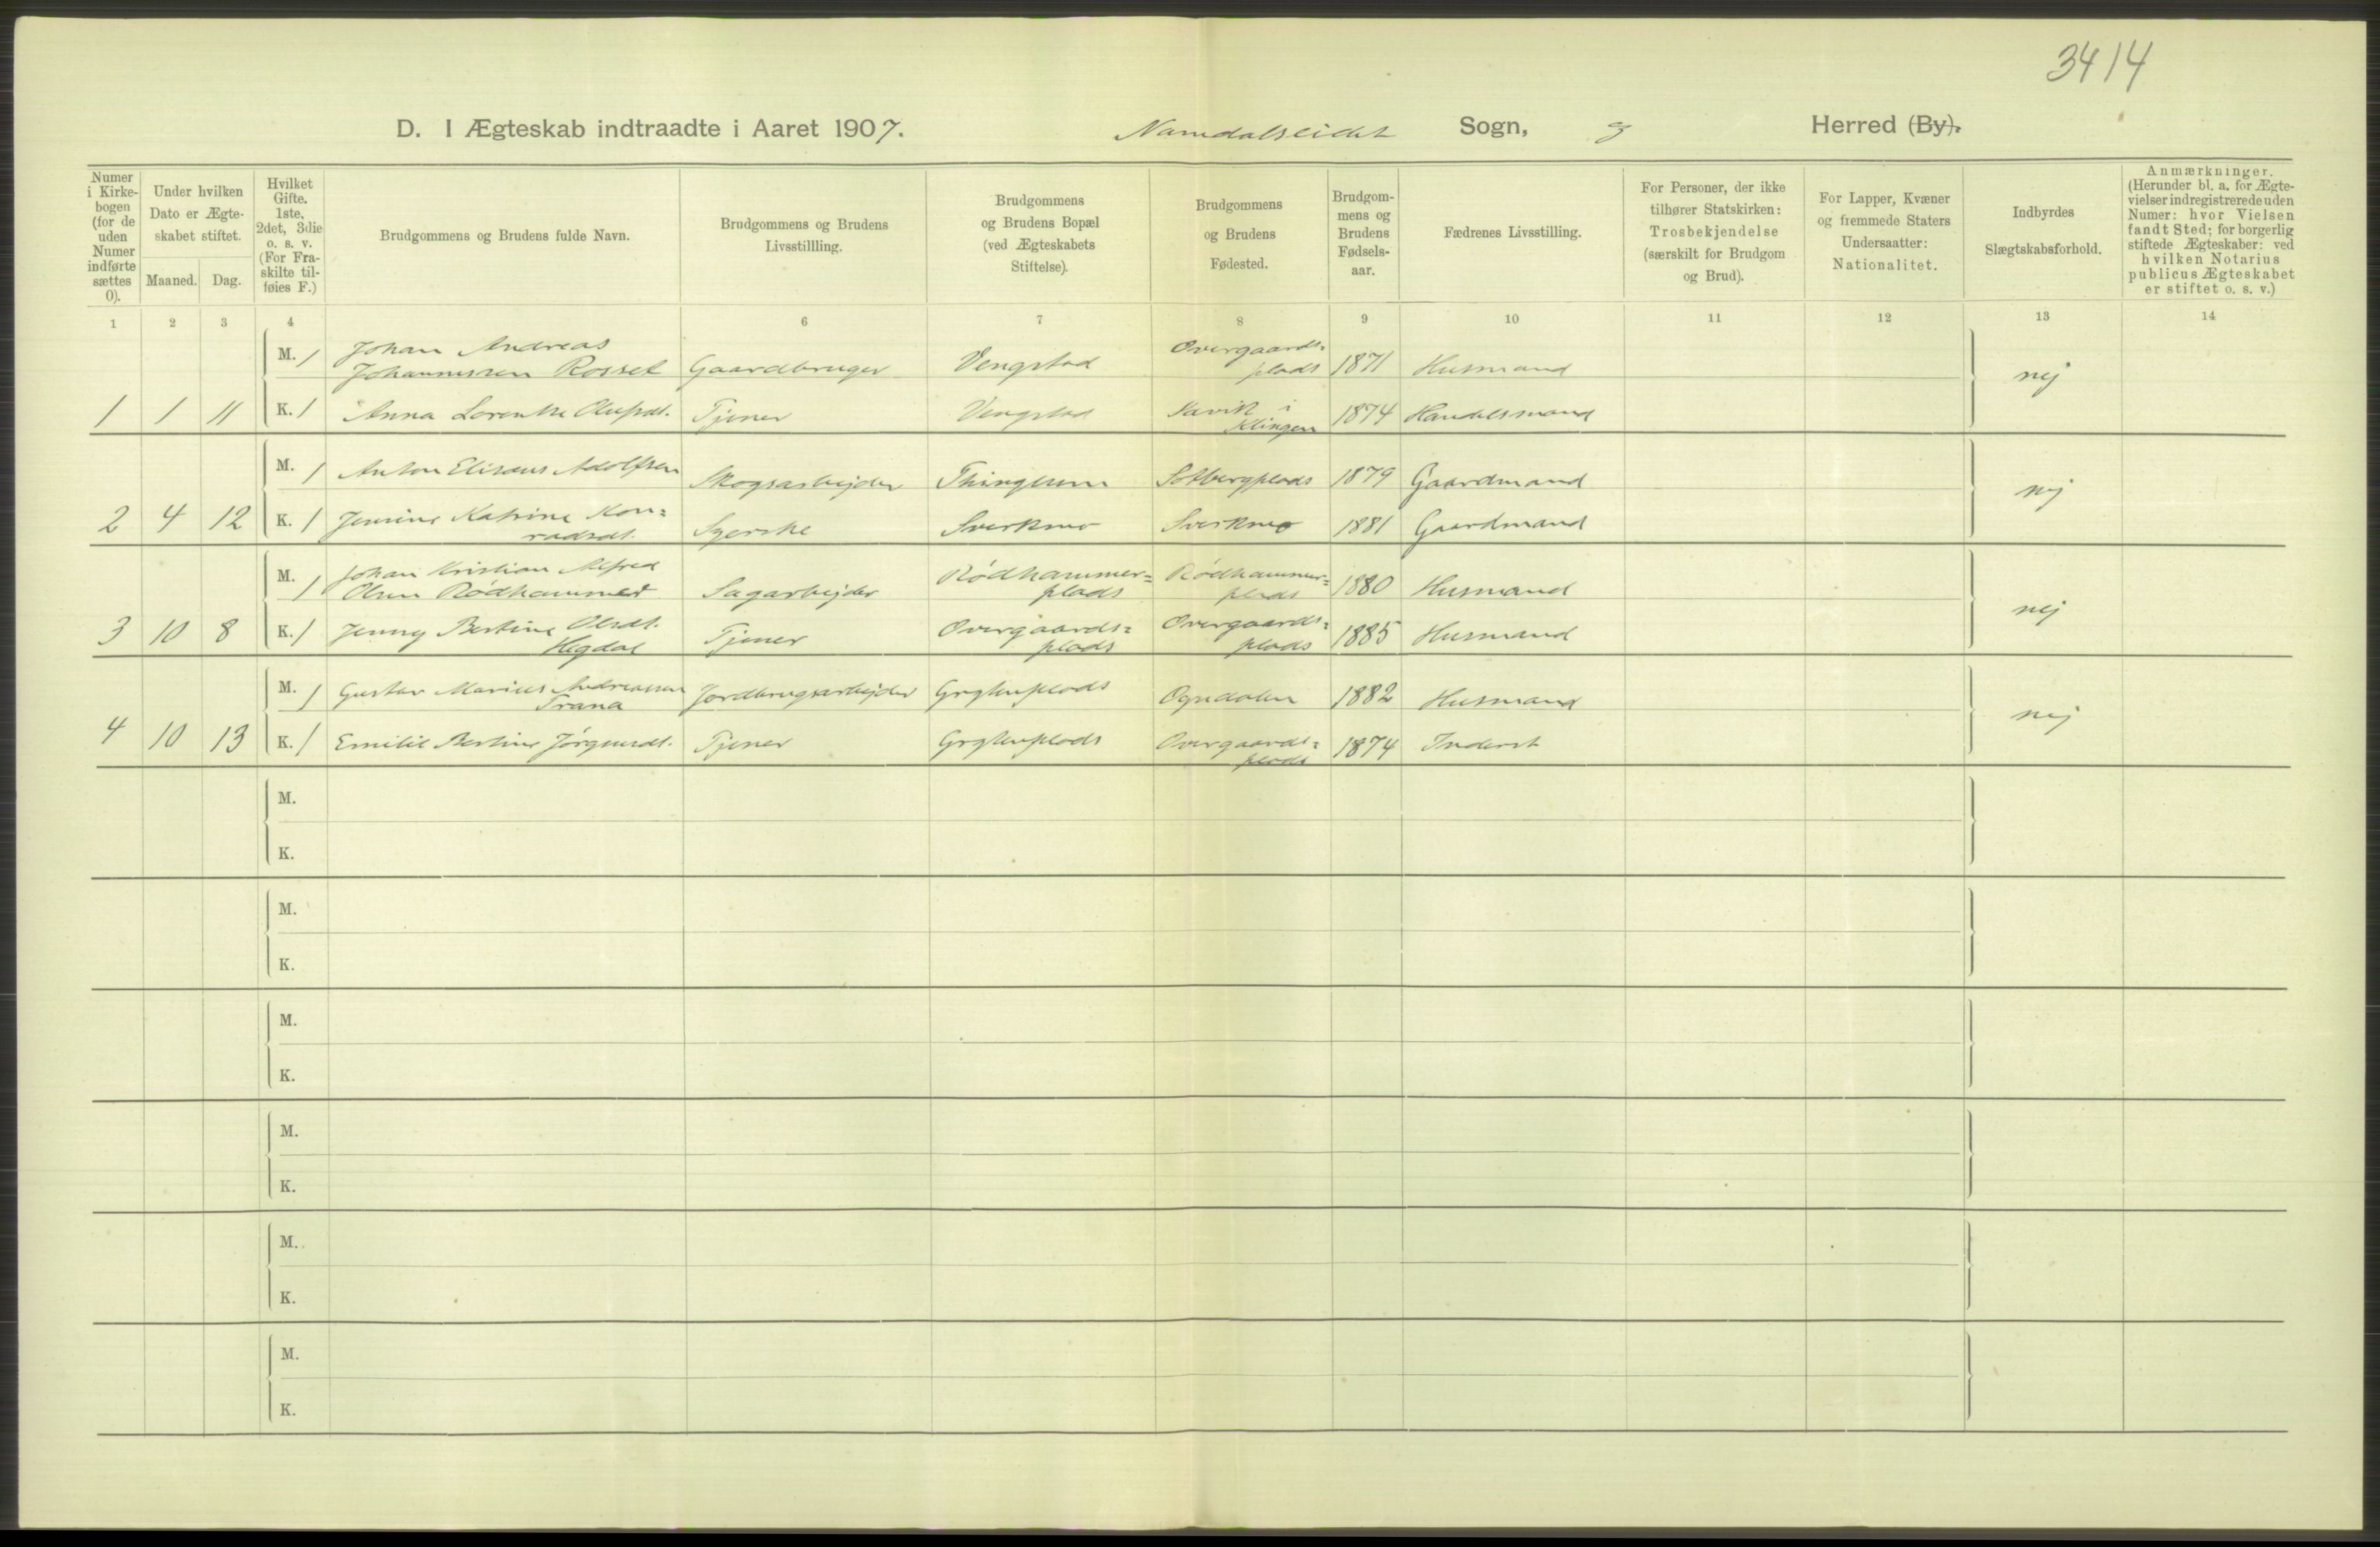 3414
D. I Ægteskab indtraadte i Aaret 1907. Namdalseidet Sogn, Herred (By).
Numer i Kirkebogen (for de uden Numer indførte sættes 0).
Under hvilken Dato er Ægteskabet stiftet.
Maaned. Dag.
Hvilket Gifte. 1ste, 2det, 3die o. s. v. (For Fraskilte tilføies F.)
Brudgommens og Brudens fulde Navn.
Brudgommens og Brudens Livsstillling.
Brudgommens og Brudens Bopæl (ved Ægteskabets Stiftelse).
Brudgommens og Brudens Fødested.
Brudgommens og Brudens Fødselsaar.
Fædrenes Livsstilling.
For Personer, der ikke tilhører Statskirken: Trosbekjendelse (særskilt for Brudgom og Brud).
For Lapper, Kvæner og fremmede Staters Undersaatter: Nationalitet.
Indbyrdes Slægtskabsforhold.
Anmærkninger. (Herunder bl. a. for Ægtevielser indregistrerede uden Numer: hvor Vielsen fandt Sted; for borgerlig stiftede Ægteskaber: ved hvilken Notarius publicus Ægteskabet er stiftet o. s. v.)
1 2 3 4 6 7 8 9 10 11 12 13 14
M. 1 Johan Andreas Johannessen Rosset Gaardbruger Vengstad Overgaards=plads 1871 Husmand nej
1 1 11 K. 1 Anna Lorentze Olufsdt. Tjener Vengstad Savik i Klingen 1874 Handelsmand
M. 1 Anton Elisæus Adolfsen Skogsarbejder Thinghum Solbergplads 1879 Gaardmand nej
2 4 12 K. 1 Jensine Katrine Kon=radsdt. Syerske Sverkmo Sverkmo 1881 Gaardmand
M. 1 Johan Kristian Alfred Olsen Rødhammer Sagarbejder Rødhammer=plads Rødhammer=plads 1880 Husmand nej
3 10 8 K. 1 Jenny Bertine Olsdt. Hegdal Tjener Overgaards=plads Overgaards=plads 1885 Husmand
M. 1 Gustav Marius Andreassen Trana Jordbrugsarbejder Grytenplads Ogndalen 1882 Husmand nej
4 10 13 K. 1 Emilie Bertine Jørgensdt. Tjener Grytenplads Overgaards=plads 1874 Inderst
M.
K.
M.
K.
M.
K.
M.
K.
M.
K.
M.
K.